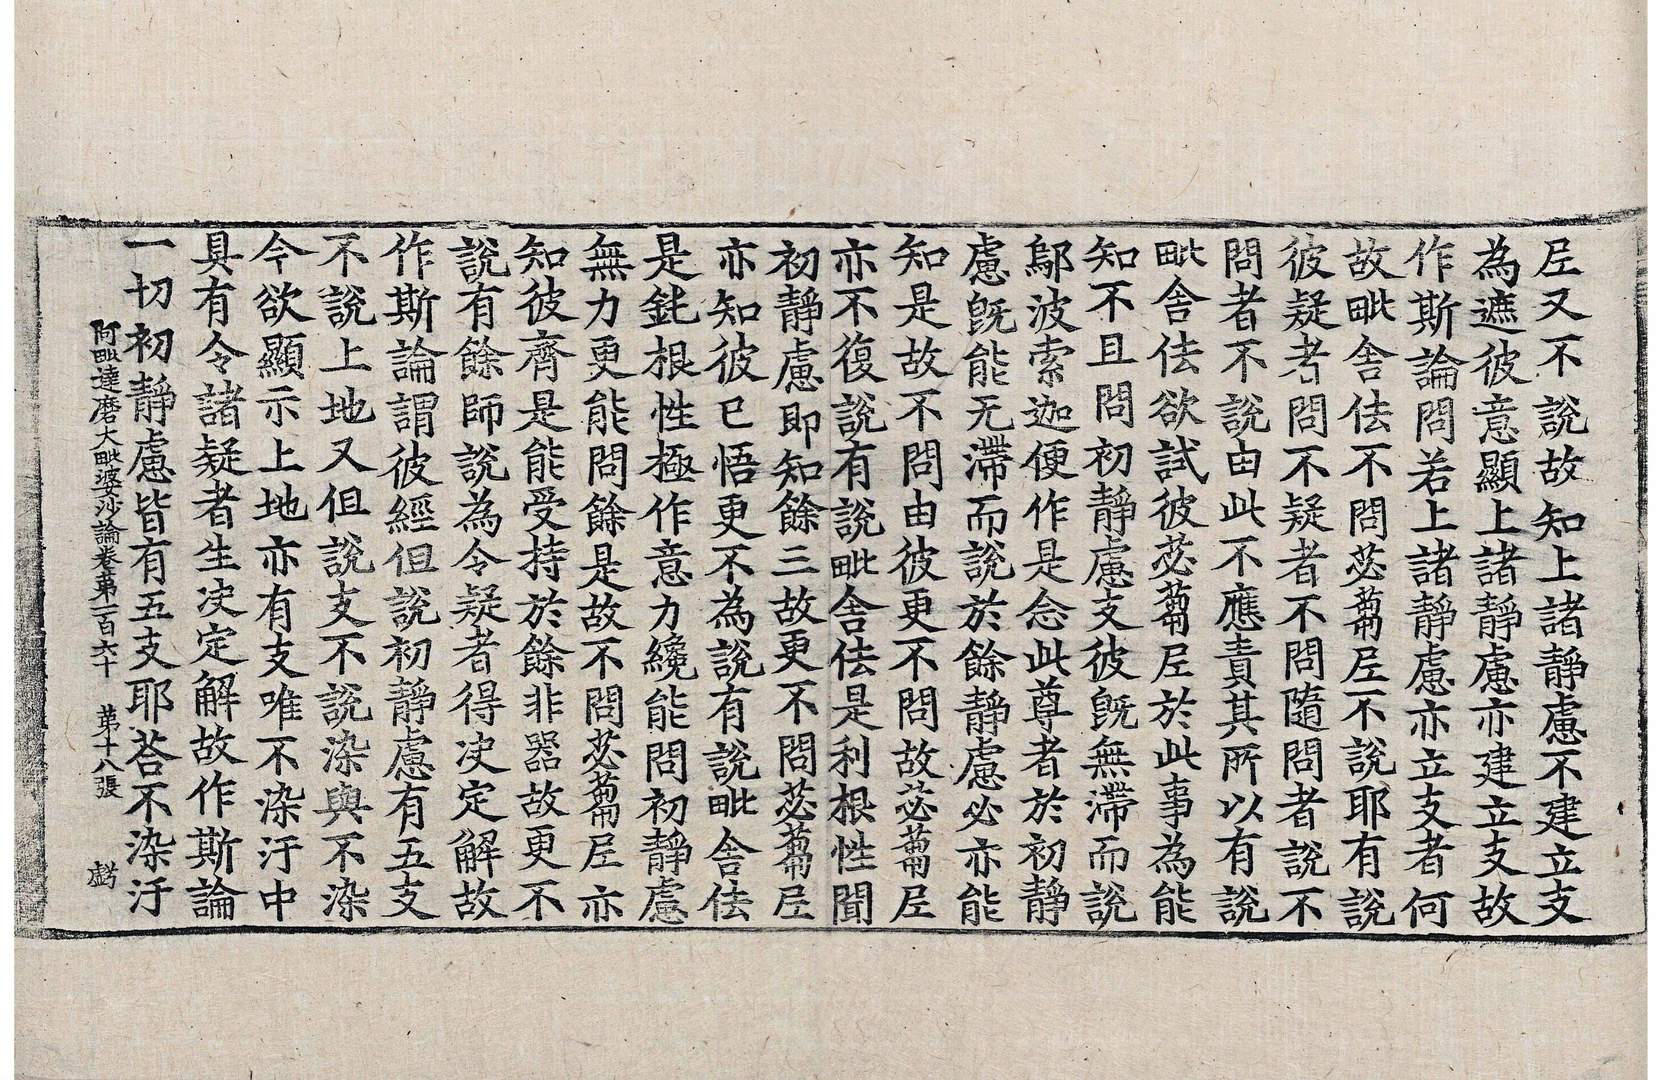 尼又不說故知上諸靜慮不建立支
為遮彼意顯上諸靜慮亦建立支故
作斯論問若上諸靜慮亦立支者何
故毗舍佉不問苾蒭尼不說耶有說
彼疑者問不疑者不問隨問者說不
問者不說由此不應責其所以有說
毗舍佉欲試彼苾蒭尼於此事為能
知不且問初靜慮支彼旣無滯而說
鄔波索迦便作是念此尊者於初靜
慮旣能无滯而說於餘靜慮必亦能
知是故不問由彼更不問故苾蒭尼
亦不復說有說毗舍佉是利根性聞
初靜慮即知餘三故更不問苾蒭尼
亦知彼已悟更不為說有說毗舍佉
是鈍根性極作意力纔能問初靜慮
無力更能問餘是故不問苾蒭尼亦
知彼齊是能受持於餘非器故更不
說有餘師說為令疑者得决定解故
作斯論謂彼經但說初靜慮有五支
不說上地又但說支不說染與不染
今欲顯示上地亦有支唯不染汙中
具有令諸疑者生决定解故作斯論
一切初靜慮皆有五支耶荅不染汙
阿毗達磨大毗婆沙論卷第一百六十 第十八張